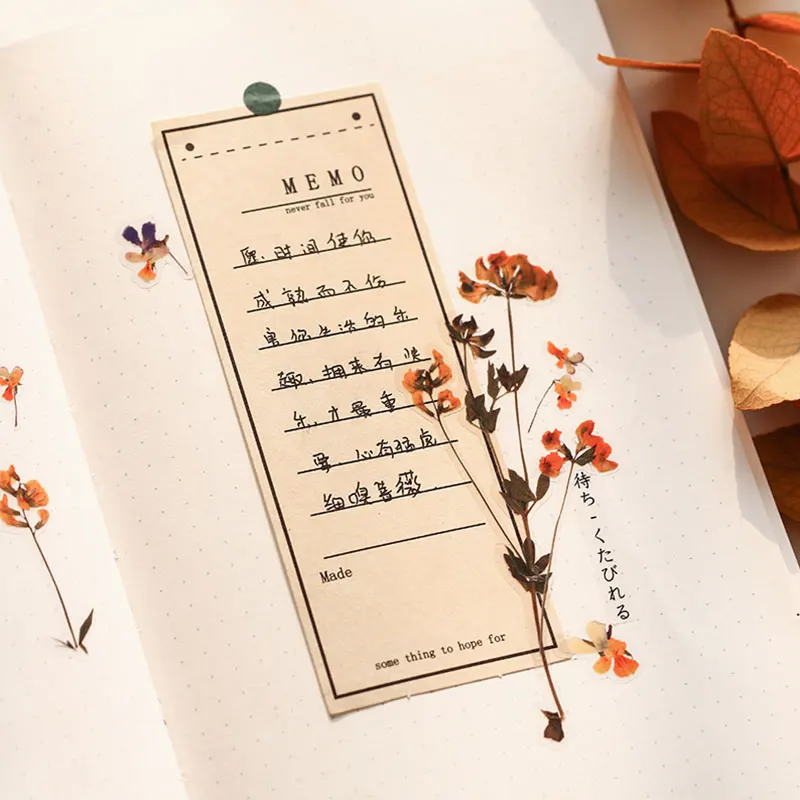 MEMO
never fall for you
愿,时间使你
成熟而不伤
害你生活的乐
趣,拥来有快
乐,才最重
要.心有猛虎
细嗅蔷薇.
Made
some thing to hope for
待ち-くたびれる